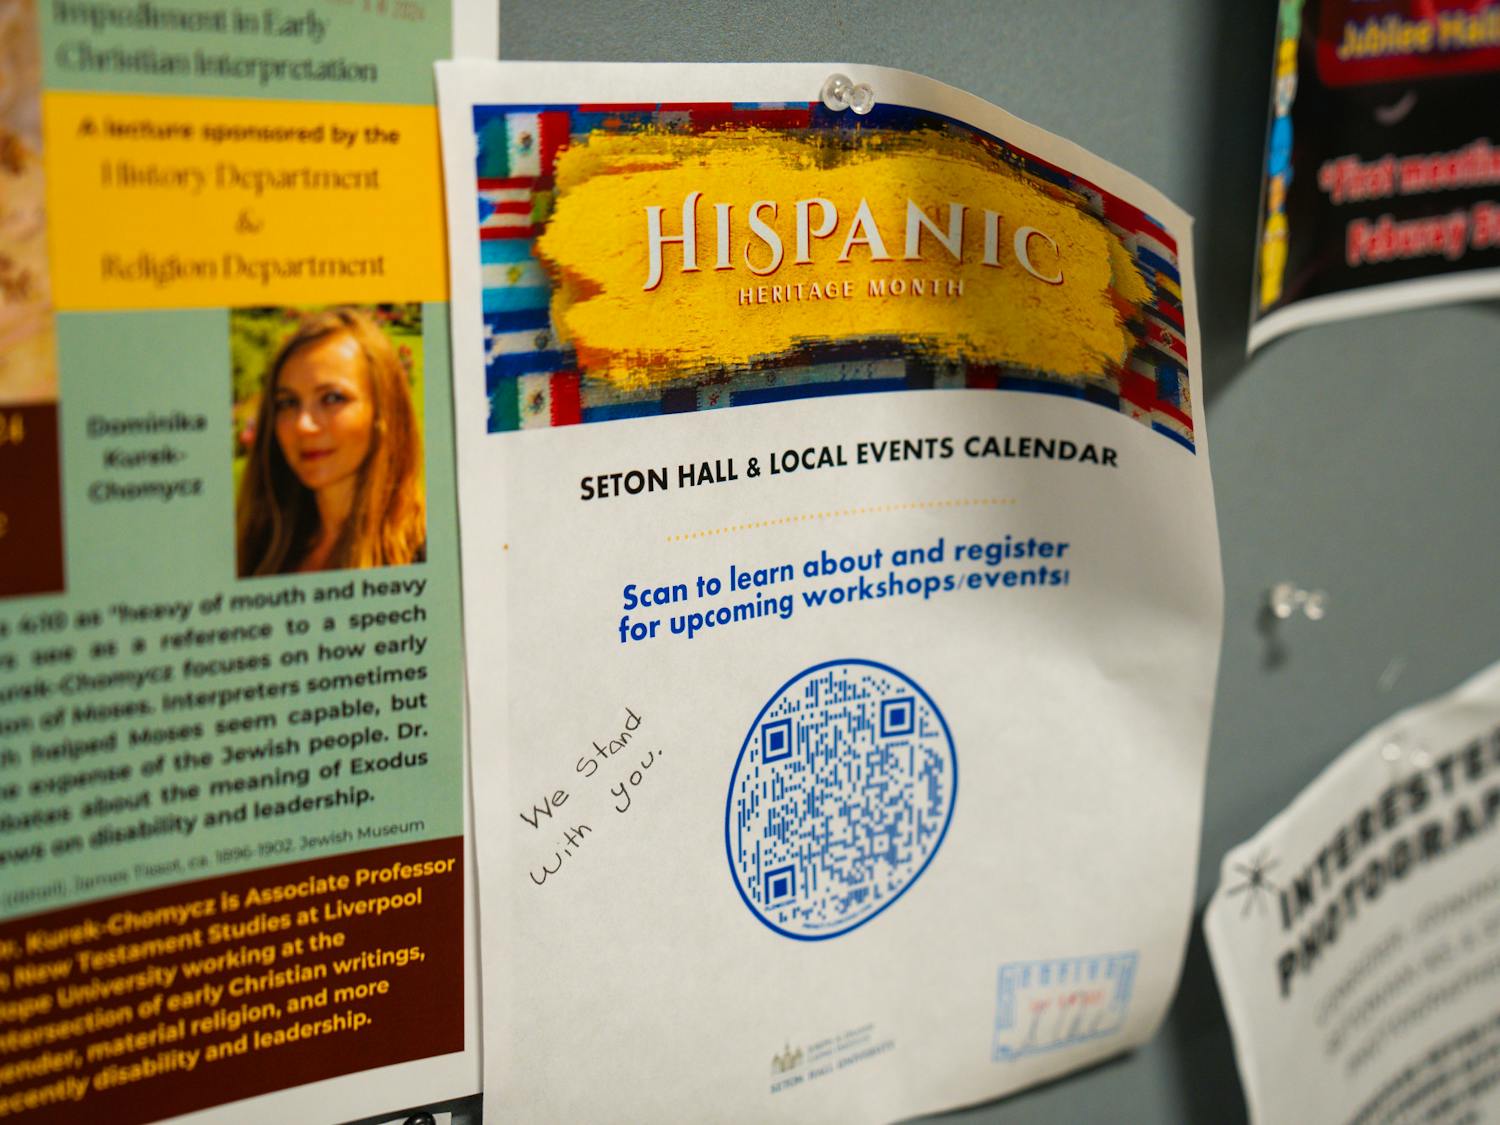 Impediment in Early
Christian Interpretation
A lecture sponsored by the
History Department
&
Religion Department
Dominika
Kurek-
Chomycz
4:10 as "heavy of mouth and heavy
see as a reference to a speech
Kurek-Chomycz focuses on how early
of Moses. Interpreters sometimes
helped Moses seem capable, but
expense of the Jewish people. Dr.
about the meaning of Exodus
on disability and leadership.
(detail), James Tissot, ca. 1896-1902. Jewish Museum
Dr. Kurek-Chomycz is Associate Professor
New Testament Studies at Liverpool
Hope University working at the
intersection of early Christian writings,
gender, material religion, and more
recently disability and leadership.
HISPANIC
HERITAGE MONTH
SETON HALL & LOCAL EVENTS CALENDAR
Scan to learn about and register
for upcoming workshops/events!
We Stand
with you.
SETON HALL UNIVERSITY
Jubilee Hall
*First meeting
INTERESTED
PHOTOGRAP